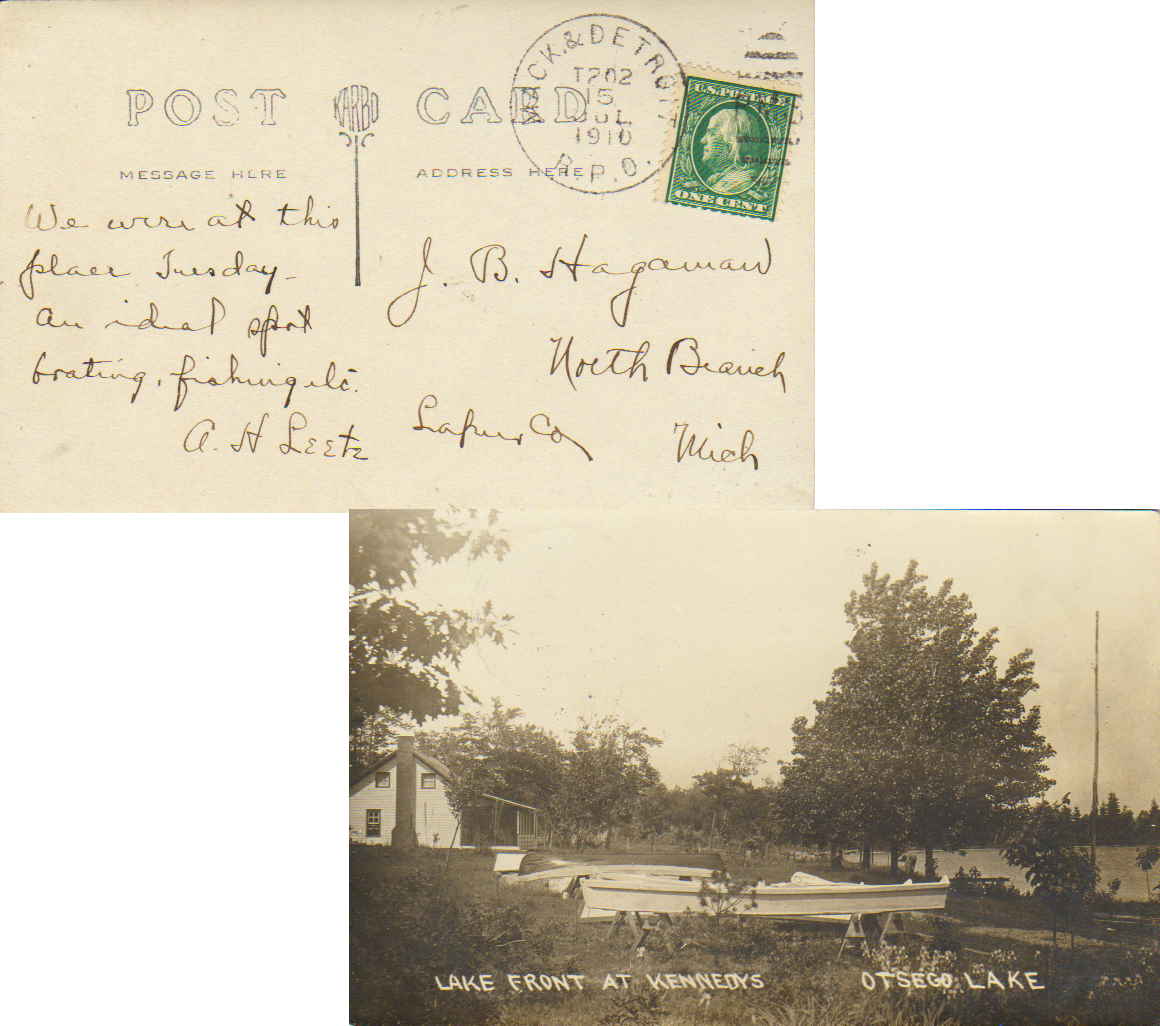 POST KARBO CARD
MESSAGE HERE
ADDRESS HERE
MACK. & DETROIT
T202
15
JUL
1910
R.P.O.
U.S. POSTAGE
ONE CENT
We were at this
place Tuesday -
an ideal spot
boating, fishing etc.
A. H Leetz
J. B. Hagaman
North Branch
Lapeer Co
Mich
LAKE FRONT AT KENNEDYS OTSEGO LAKE